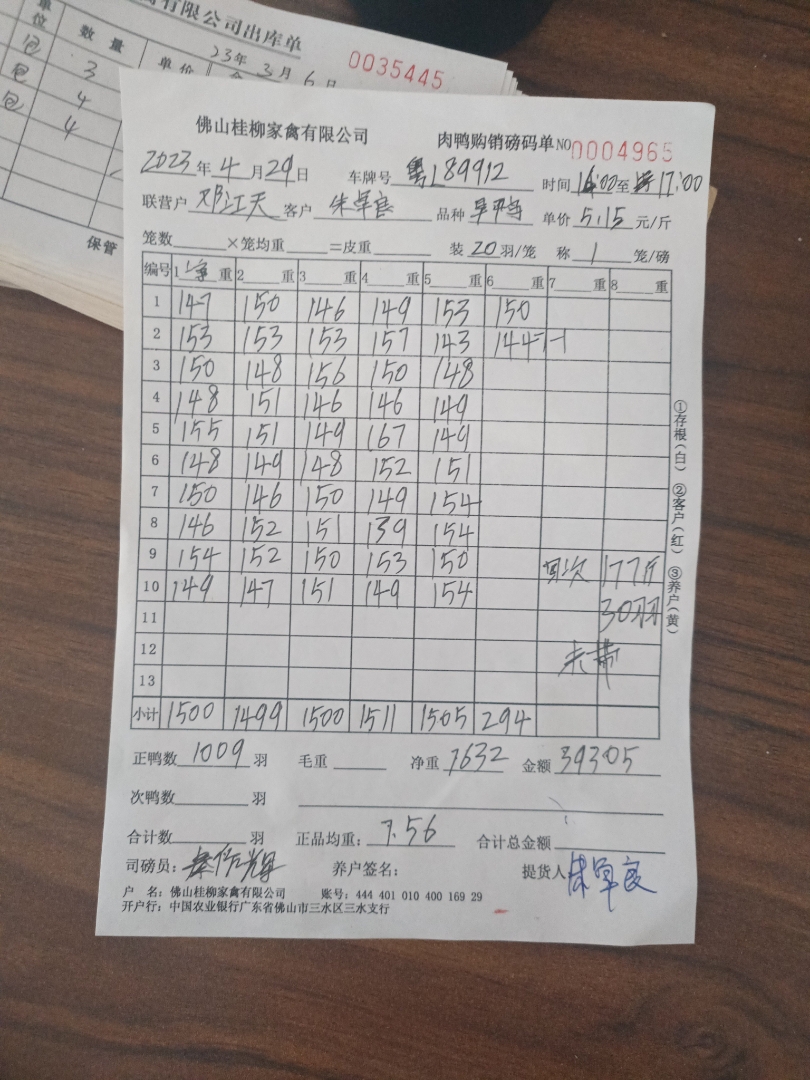 有限公司出库单
单位 数量 单价
23年3月6日
0035445
包 3
包 4
包 4
保管
佛山桂柳家禽有限公司 肉鸭购销磅码单 NO 0004965
2023年4月29日 车牌号 粤L89912 时间 16:00至17:00
联营户 邓江天 客户 朱军良 品种 单价 5.15 元/斤
笼数 ×笼均重 =皮重 装 20 羽/笼 称 1 笼/磅
编号 1 重 2 重 3 重 4 重 5 重 6 重 7 重 8 重
1 147 150 146 149 153 150
2 153 153 153 157 143 144 7-1
3 150 148 156 150 148
4 148 151 146 146 149
5 155 151 149 167 149
6 148 149 148 152 151
7 150 146 150 149 154
8 146 152 151 139 154
9 154 152 150 153 150 177斤
10 149 147 151 149 154
11 30羽
12 未带
13
小计 1500 1499 1500 1511 1505 294
正鸭数 1009 羽 毛重 净重 7632 金额 39305
次鸭数 羽
合计数 羽 正品均重: 7.56 合计总金额
司磅员: 养户签名: 提货人 朱军良
户 名: 佛山桂柳家禽有限公司 账号: 444 401 010 400 169 29
开户行: 中国农业银行广东省佛山市三水区三水支行
①存根(白) ②客户(红) ③养户(黄)